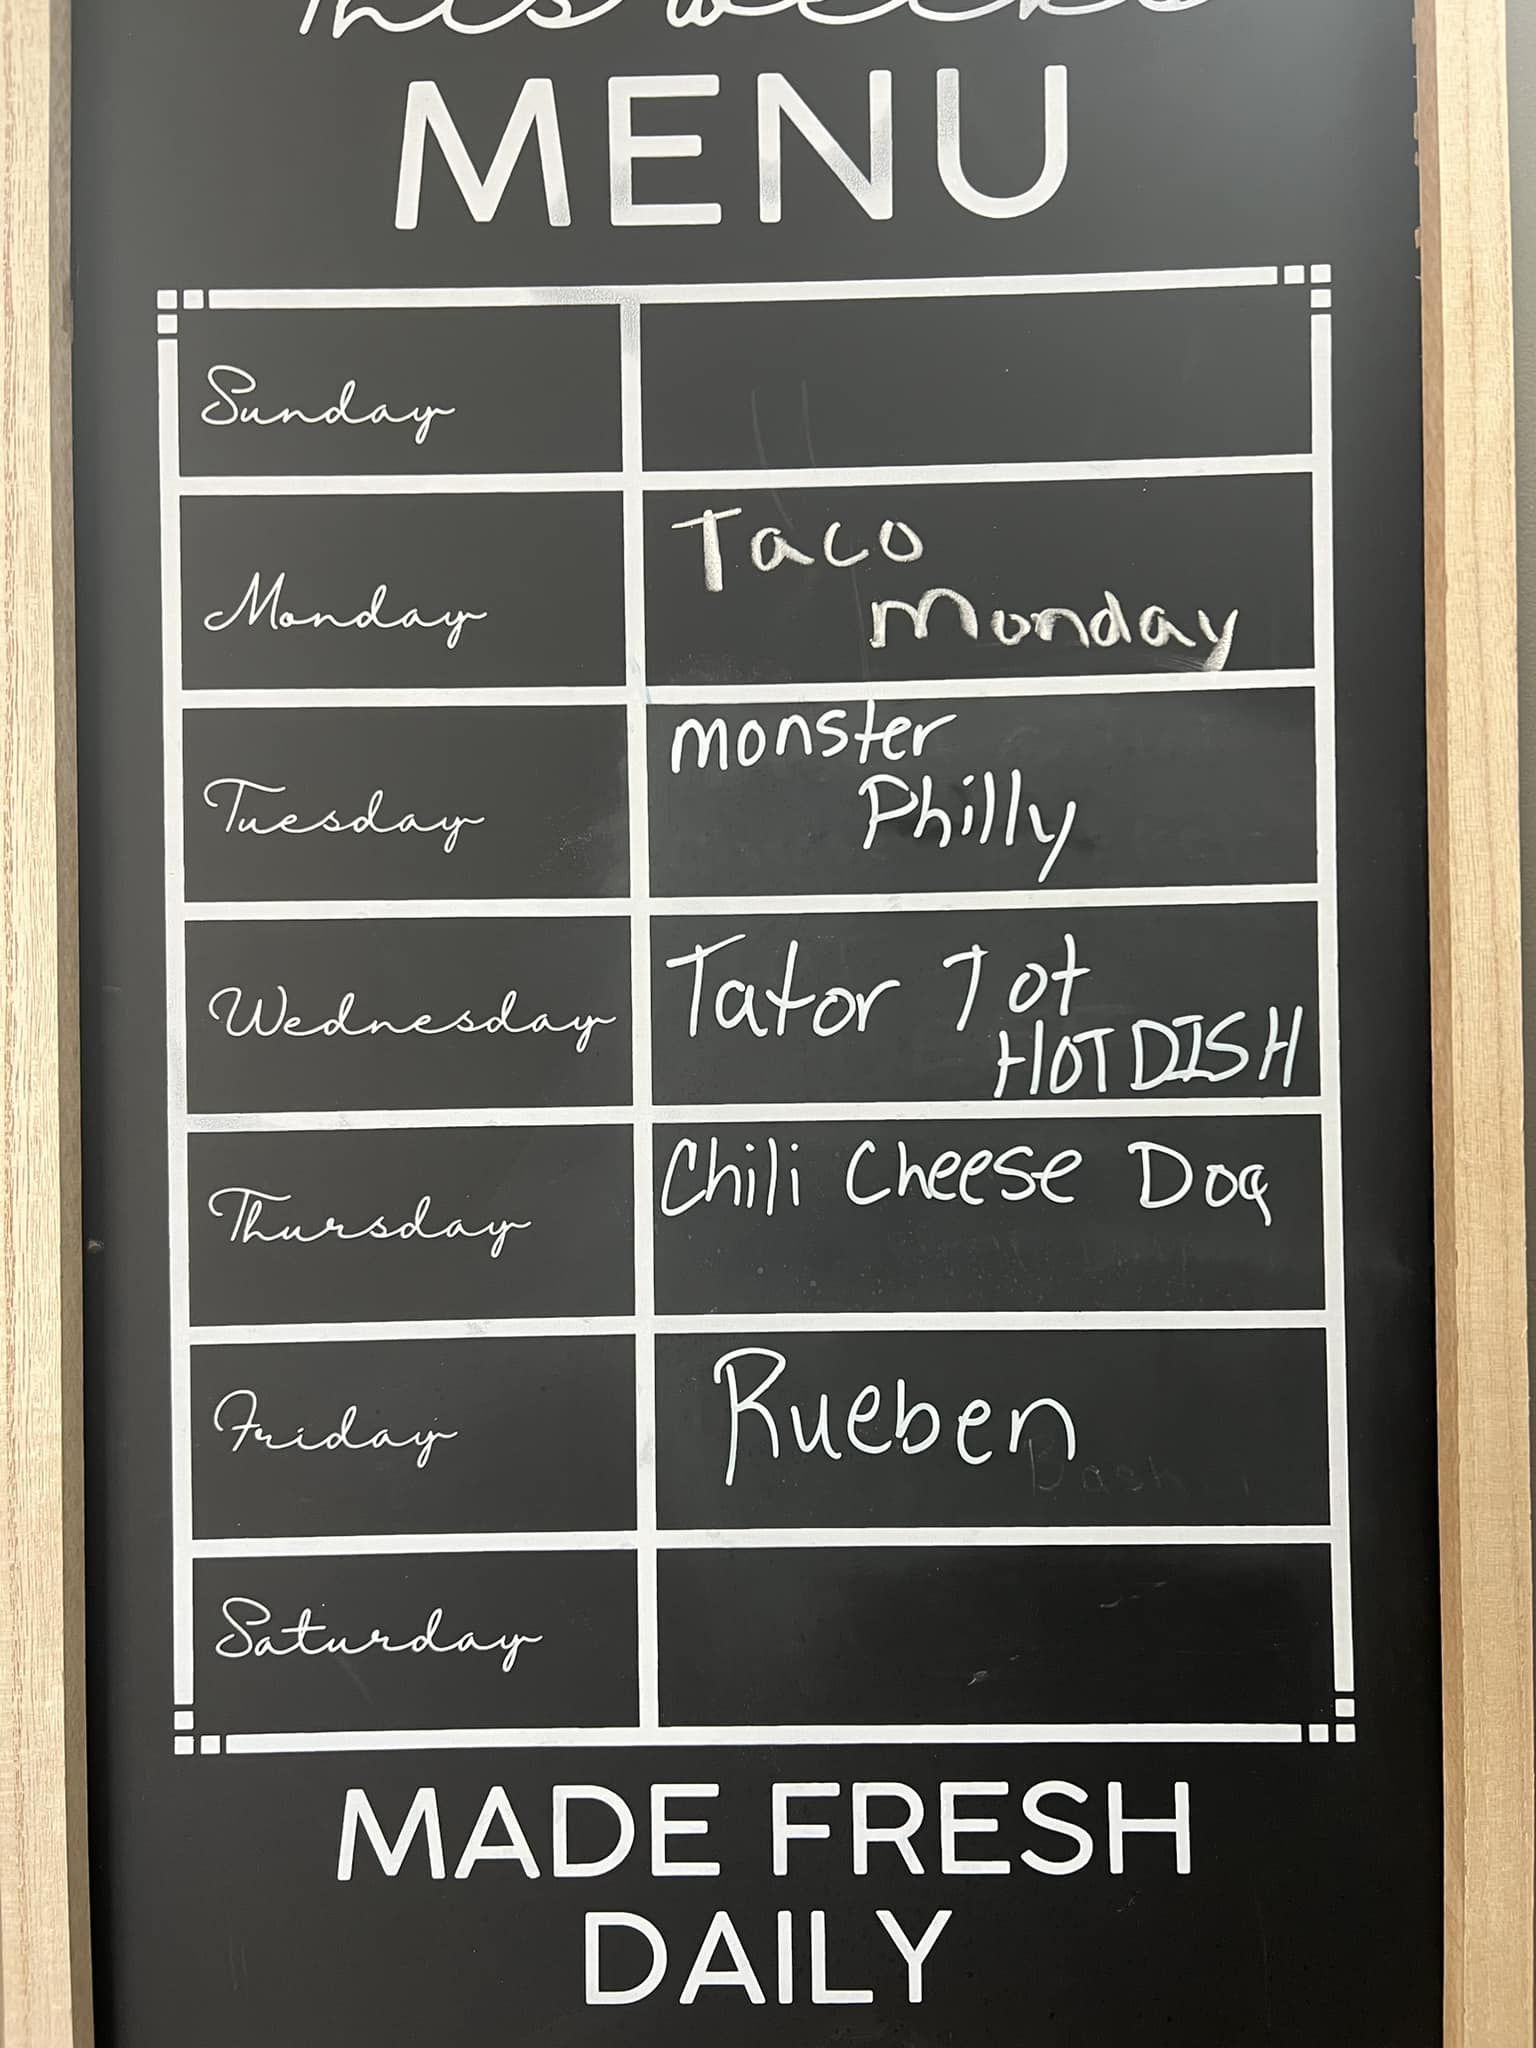 This weeks
MENU
Sunday
Monday
Taco
Monday
Tuesday
monster
Philly
Wednesday
Tator Tot
HOTDISH
Thursday
Chili Cheese Dog
Friday
Rueben
Saturday
MADE FRESH
DAILY